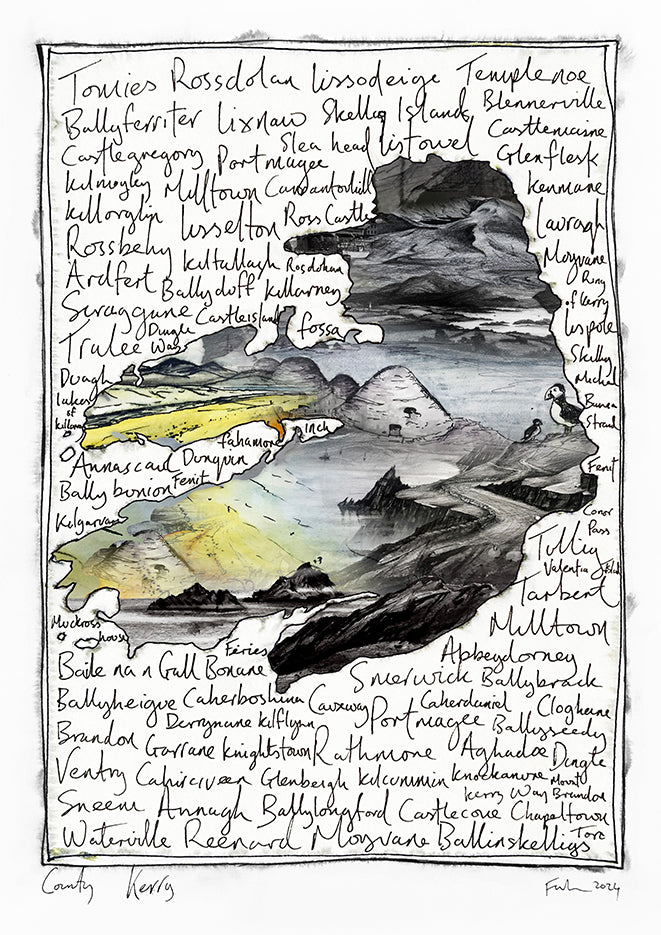 Tomies Rossdolan Lissodeige Templenoe
Ballyferriter Lixnaw Skellig Islands Blennerville
Castlegregory Portmagee Slea head Listowel Castlemaine
Kilmoyley Milltown Carrantoohill Glenflesk
Killorglin Lisselton Ross Castle Kenmare
Rossbehy Kiltallagh Rosdohan Lauragh
Ardfert Ballyduff Killarney Moyvane
Scraggane Castleisland Fossa Ring
of Kerry
Tralee Dingle
Way Lispole
Duagh Skellig
Michael
Lakes
of
Killarney Bunea
Strand
Fahamore inch
Annascaul Dunquin Fenit
Ballybunion Fenit
Kilgarvan Conor
Pass
Tullig
Valentia Island
Tarbert
Muckross
house Milltown
Feries Abbeydorney
Baile na n Gall Bonane Smerwick Ballybrack
Ballyheigue Caherboshina Causway Caherdaniel Cloghane
Derrynane Kilflynn Portmagee Ballyseedy
Brandon Garrane Knightstown Rathmore Aghadoe Dingle
Ventry Cahirciveen Glenbeigh Kilcummin Knockanure Mount
Brandon
Kerry Way
Sneem Annagh Ballylongford Castlecove Chapeltown
Waterville Reenard Moyvane Ballinskelligs Torc
County Kerry 2024